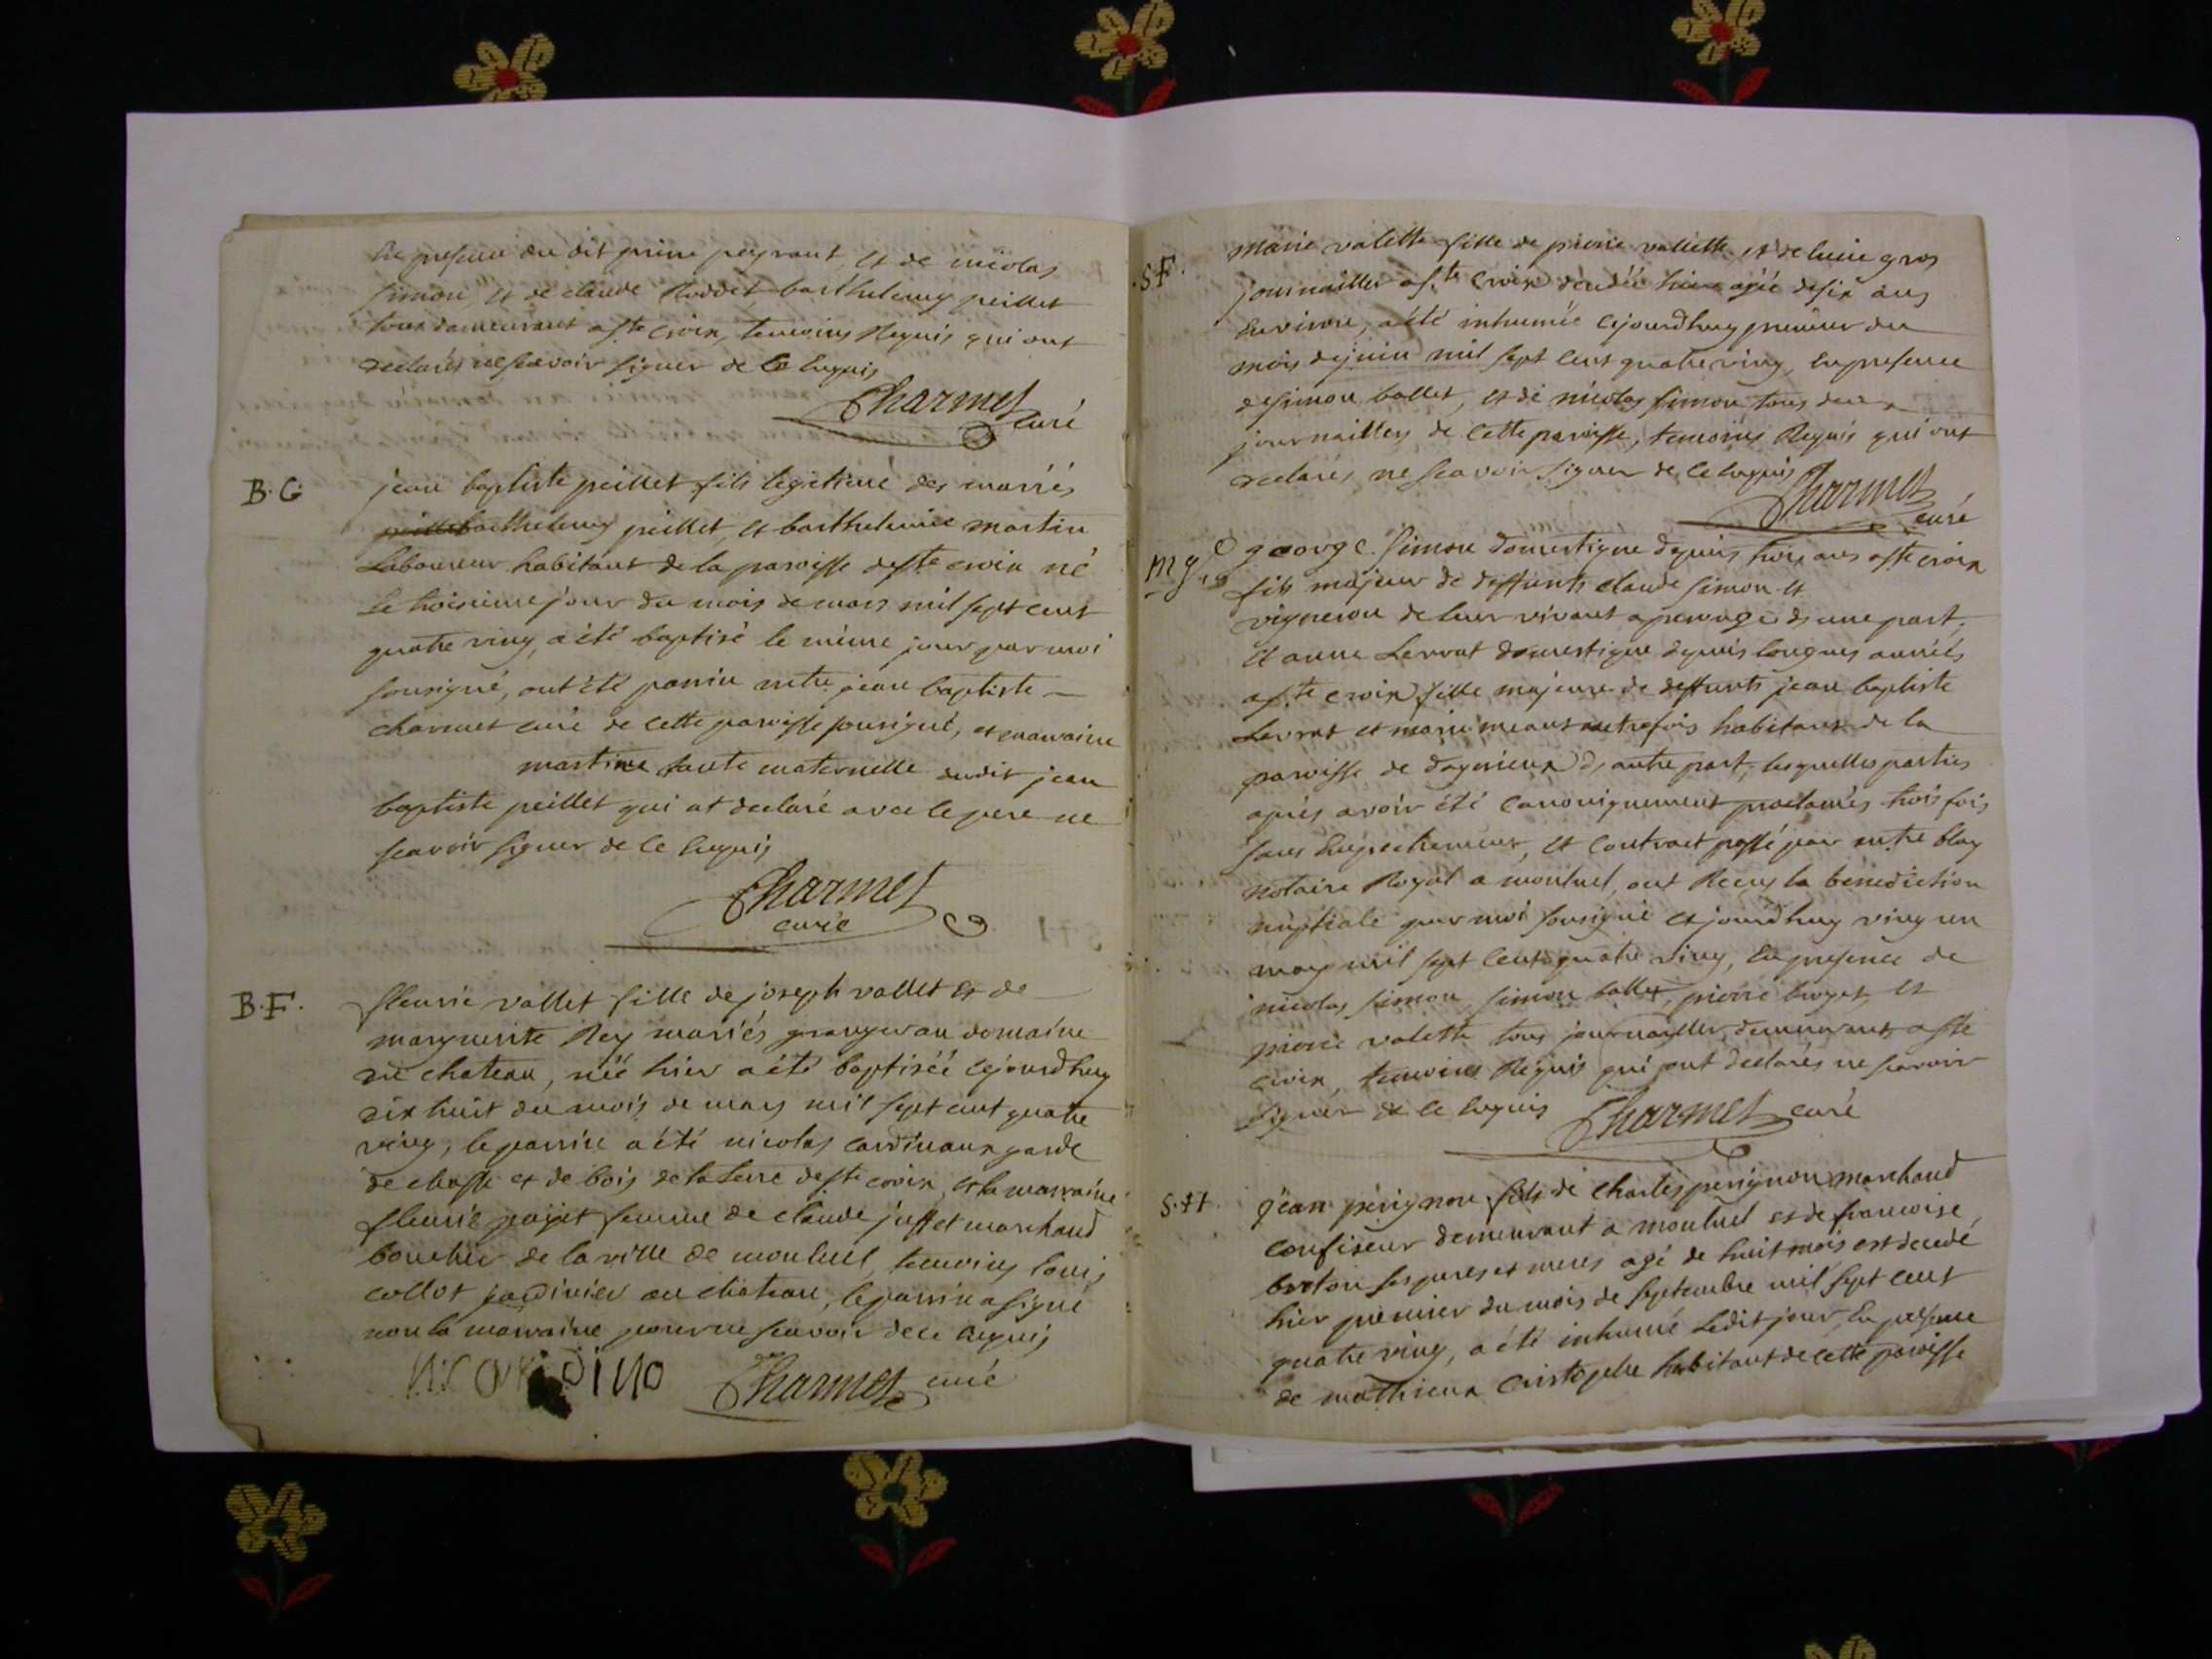 En presence du dit pierre peyraut, et de nicolas
simon, et de claude Roddet barthelemy peillet
tous demeurant a ste croix, temoins Requis qui ont
declarés ne scavoir signer de ce Enquis
Charmet
curé
B.G.
jean baptiste peillet fils legitime des mariés
barthelemy peillet, et barthelemie martin
Laboureur habitant de la paroisse de ste croix né
Le troisieme jour du mois de mars mil sept cent
quatre ving, a été baptisé le même jour par moi
sousigné, ont été parrin mttre jean baptiste
charmet curé de cette paroisse sousigné, et marraine
martine tante maternelle dudit jean
baptiste peillet qui at declaré avec le pere ne
scavoir signer de ce Enquis
Charmet
curé
B.F.
fleurie vallet fille de joseph vallet et de
marguerite Rey mariés granger au domaine
du chateau, néé hier a été baptiséé cejourdhuy
dix huit du mois de mars mil sept cent quatre
ving, le parrin a été nicolas cardinaux garde
de chasse et de bois de la terre de ste croix, et la marraine
fleurie pojet femme de claude juffet marchand
boucher de la ville de montluel, temoins louis
collot jardinier au chateau, le parrin a signé
non la marraine pour ne scavoir de ce Enquis
Charmet curé
S.F.
marie valette fille de pierre vallette et de lucie gros
journaillier a ste Croix décédéé hier agéé de six ans
Environ, a été inhuméé cejourdhuy premier du
mois de juin mil sept cent quatre ving, En presence
de simon ballet, et de nicolas simon tous deux
journaillers de Cette paroisse, temoins Requis qui ont
declarés ne scavoir signer de ce Enquis
Charmet
curé
george Simon domestique depuis trois ans a ste croix
fils majeur de deffunts claude simon et
vigneron de leur vivant a d'une part,
Et anne Levrat domestique depuis longues annéés
a ste croix fille majeure de deffunts jean baptiste
Levrat et marie meant autrefois habitant de la
paroisse de dagnieux d'autre part, lesquelles parties
aprés avoir été Canoniquement proclamés trois fois
sans Empechement, et Contract passé par mttre blay
notaire Royal a montluel, ont Reçus la bénédiction
nuptiale par moi sousigné cejourdhuy ving un
may mil sept Cent quatre ving, En presence de
nicolas simon, simon ballet, pierre et
pierre valette tous journaillers demeurant a ste
Croix, temoins Requis qui ont declarés ne scavoir
signer de ce Enquis Charmet curé
jean perignon fils de Charles perignon marchand
Confiseur demeurant a montluel et de francoise
breton ses peres et meres agé de huit mois est decedé
hier premier du mois de septembre mil sept cent
quatre ving, a été inhumé Ledit jour, En presence
de mathieux Cristophe habitant de cette paroisse